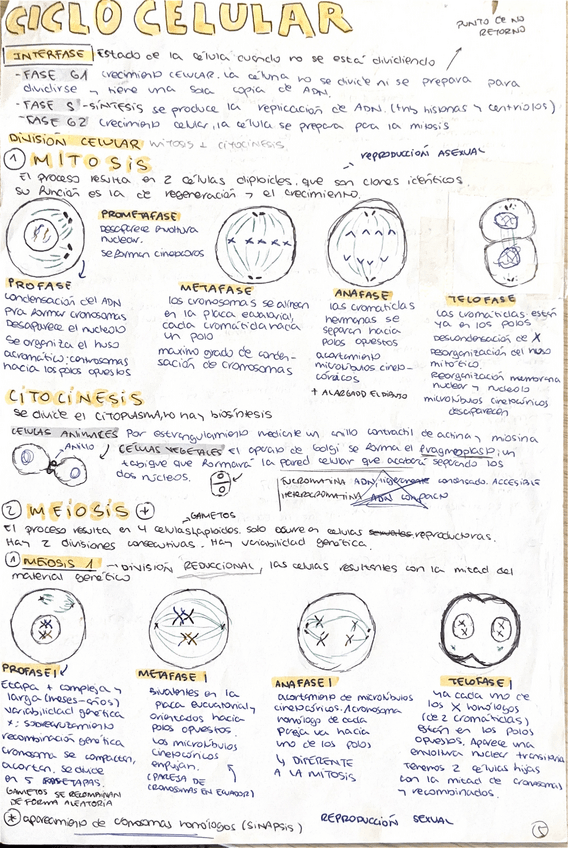 CICLO CELULAR
PUNTO DE NO
RETORNO
INTERFASE Estado de la célula cuando no se está dividiendo
- FASE G1 crecimiento CELULAR. La célula no se divide ni se prepara para
dividirse y tiene una sola copia de ADN.
- FASE S - SÍNTESIS se produce la replicación de ADN. (tny histonas y centriolos)
- FASE G2 Crecimiento celular, la célula se prepara para la mitosis
DIVISIÓN CELULAR MITOSIS + CITOCINESIS
① MITOSIS
REPRODUCCIÓN ASEXUAL
El proceso resulta en 2 células diploides, que son clones idénticos
su función es la de regeneración y el crecimiento.
PROMETAFASE
Desaparece envoltura
nuclear.
se forman cinetocoros
PROFASE
condensación del ADN
para formar cromosomas
Desaparece el nucleolo
Se organiza el huso
acromático: centrosomas
hacia los polos opuestos
METAFASE
los cromosomas se alinean
en la placa ecuatorial,
cada cromátida hacia
un polo
maximo grado de conden-
sación de cromosomas
ANAFASE
las cromátidas
hermanas se
separan hacia
polos opuestos
acortamiento
microtúbulos cineto-
córicos
+ ALARGADO EL HUSO
TELOFASE
Las cromátidas están
ya en los polos
Descondensación de X
Reorganización del huso
mitótico.
Reorganización membrana
nuclear y nucleolo
microtúbulos cinetocóricos
desaparecen
CITOCINESIS
se divide el CITOPLASMA, no hay biosíntesis
CÉLULAS ANIMALES Por estrangulamiento mediante un anillo contractil de actina y miosina
ANILLO
CÉLULAS VEGETALES El aparato de Golgi se forma el fragmoplasto: un
tabique que formará la pared celular que acabará separando los
dos núcleos.
EUCROMATINA ADN ligeramente condensado. ACCESIBLE
HETEROCROMATINA ADN compacto
② MEIOSIS +
GAMETOS
El proceso resulta en 4 células haploides. solo ocurre en celulas sexuales, reproductoras.
Hay 2 divisiones consecutivas. Hay variabilidad genética.
① MEIOSIS 1 → DIVISIÓN REDUCCIONAL, las celulas resultantes con la mitad del
material genético
PROFASE I
Etapa + compleja y
larga (meses-años)
variabilidad genética
*: sobrecruzamiento
recombinación genética
cromosoma se compactan,
acortan, se divide
en 5 SUBETAPAS.
GAMETOS SE RECOMBINAN
DE FORMA ALEATORIA
METAFASE I
Bivalentes en la
placa ecuatorial y
orientados hacia
polos opuestos.
Los microtúbulos
cinetocóricos
empujan.
(PAREJA DE
CROMOSOMAS EN ECUADOR)
ANAFASE I
acortamiento de microtúbulos
cinetocóricos. 1 cromosoma
homólogo de cada
pareja va hacia
uno de los polos
↳ DIFERENTE
A LA MITOSIS
TELOFASE I
Ya cada uno de
los X homólogos
(de 2 cromátidas)
están en los polos
opuestos. Aparece una
envoltura nuclear transitoria
Tenemos 2 células hijas
con la mitad de cromosomas
y recombinados.
* apareamiento de cromosomas homólogos (SINAPSIS)
REPRODUCCIÓN SEXUAL
5